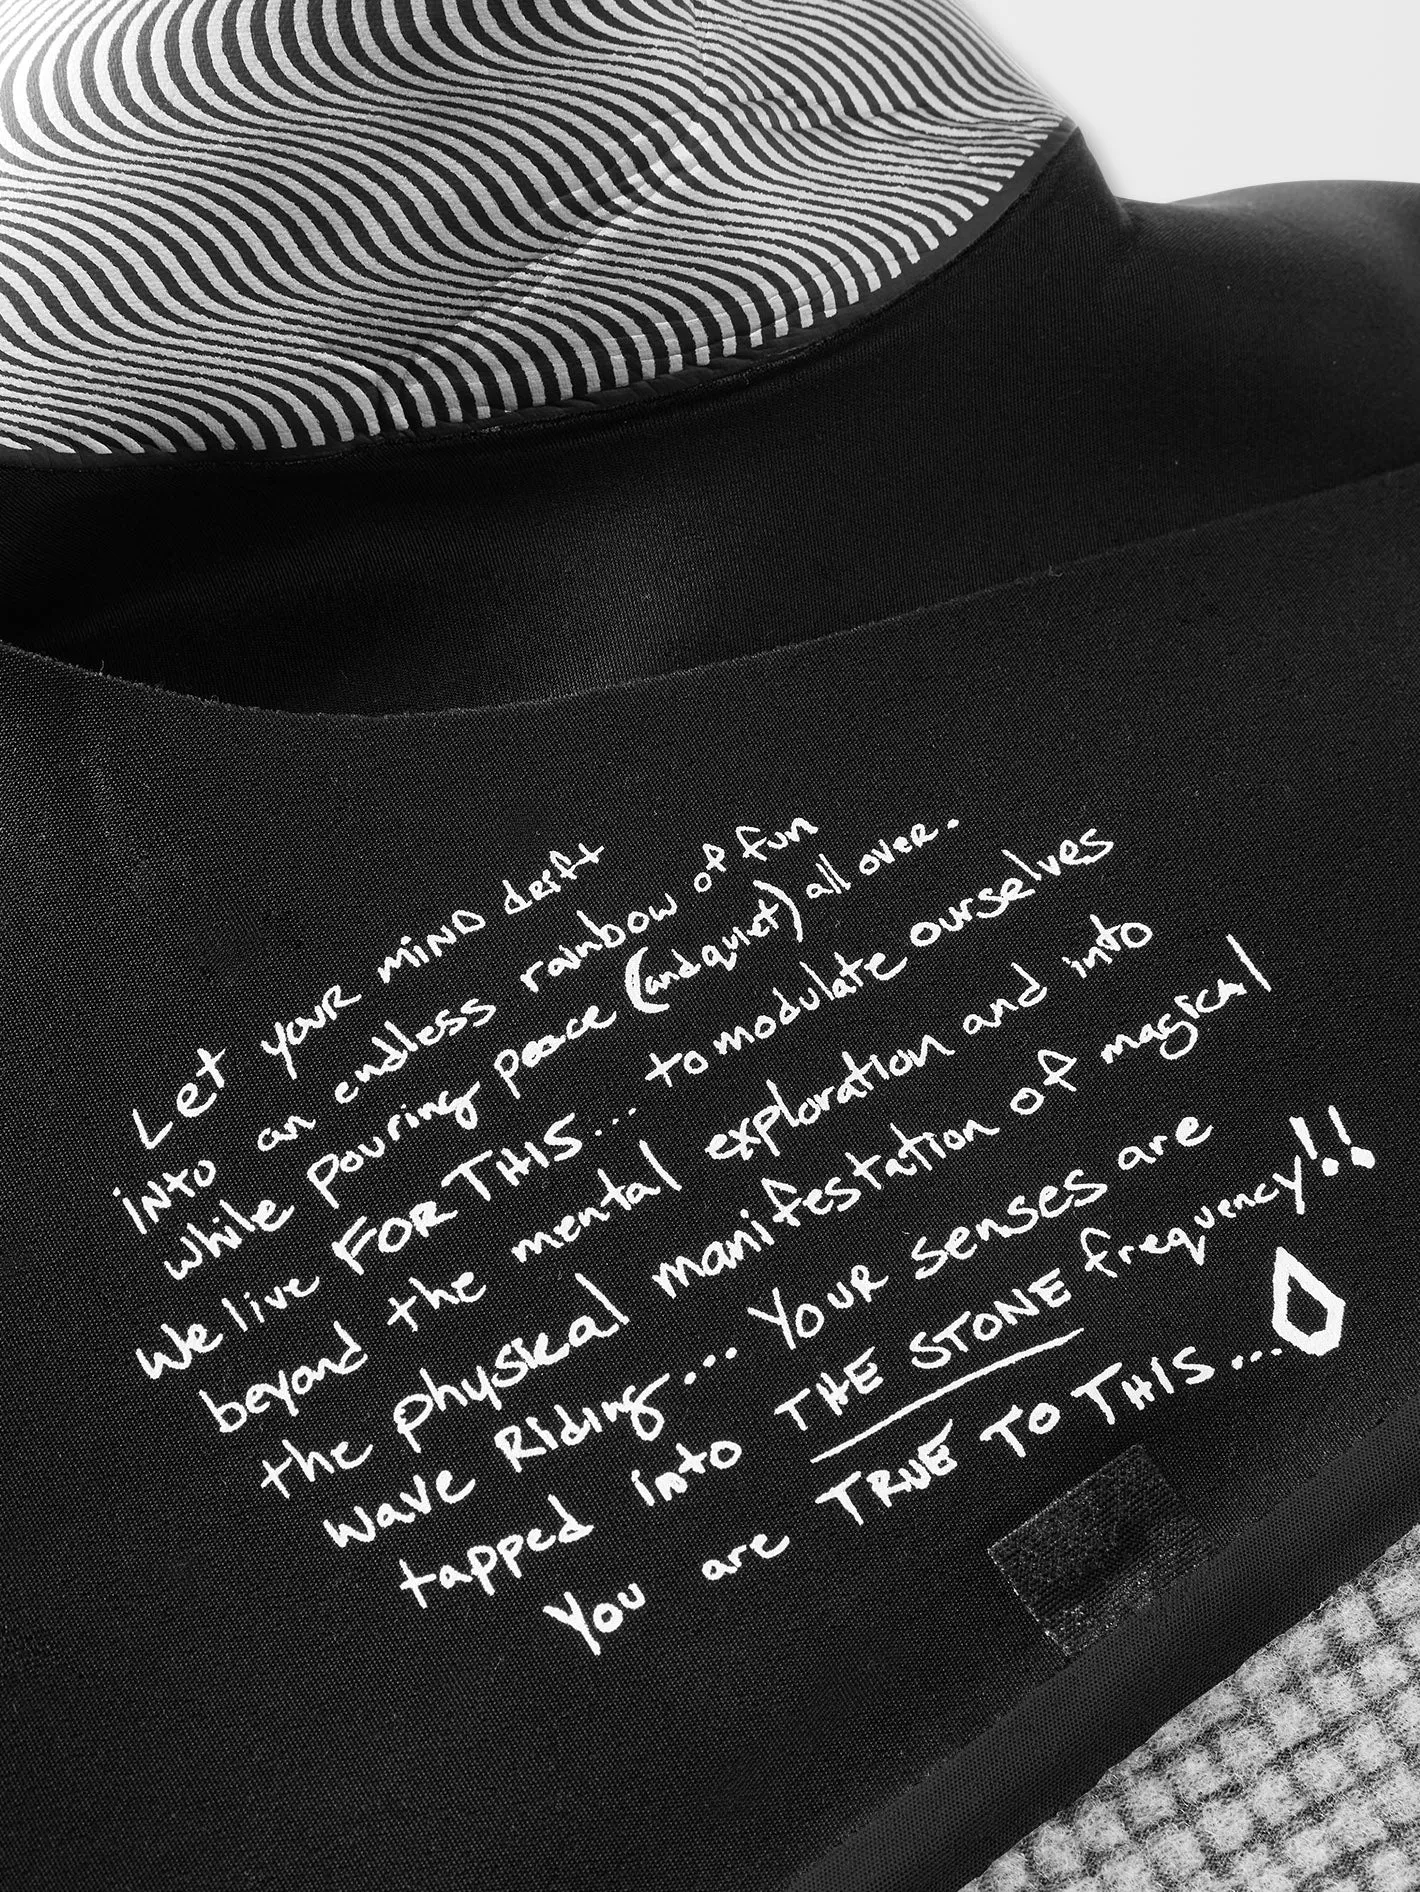 Let your MIND drift
into an endless rainbow of fun
while pouring peace (and quiet) all over.
We live FOR THIS... to modulate ourselves
beyond the mental exploration and into
the physical manifestation of magical
wave Riding... YOUR senses are
tapped into THE STONE frequency!!
You are TRUE TO THIS...